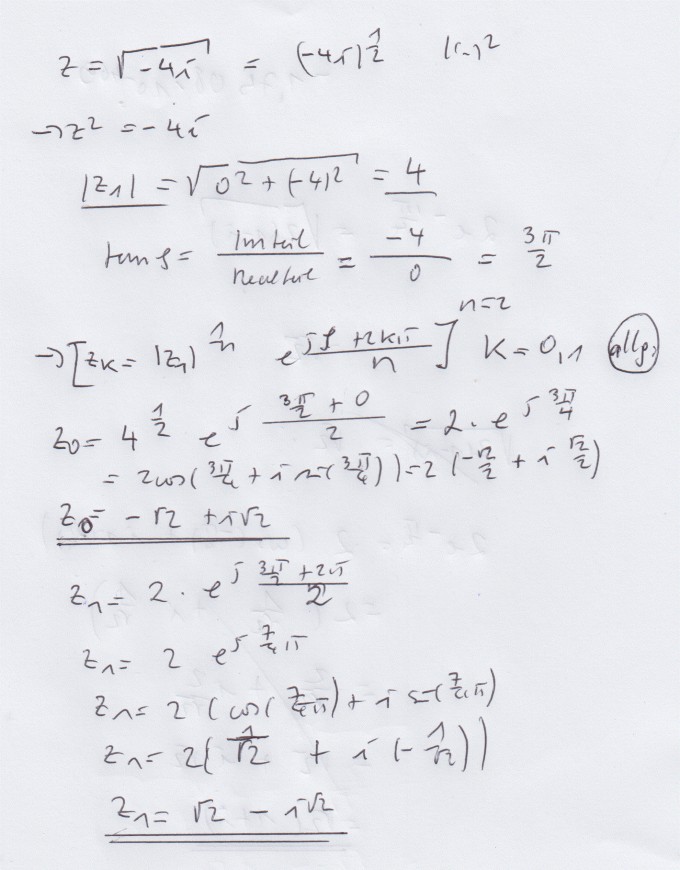 z = √-4i = (-4i)^(1/2) |(..)²
→ z² = -4i
|z1| = √(0² + (-4)²) = 4
tan φ = Imteil / Realteil = -4 / 0 = 3π/2
→ [zK = |z1|^(1/n) e^(j (φ + 2kπ)/n)] n=2 K = 0,1 allg.
z0 = 4^(1/2) e^(j (3π/2 + 0)/2) = 2 · e^(j 3π/4)
= 2 cos(3π/4 + i sin(3π/4)) = 2 (-√2/2 + i √2/2)
z0 = -√2 + i√2
z1 = 2 · e^(j (3π/2 + 2π)/2)
z1 = 2 e^(j 7/4 π)
z1 = 2 (cos(7/4 π) + i sin(7/4 π)
z1 = 2( 1/√2 + i (-1/√2))
z1 = √2 - i√2